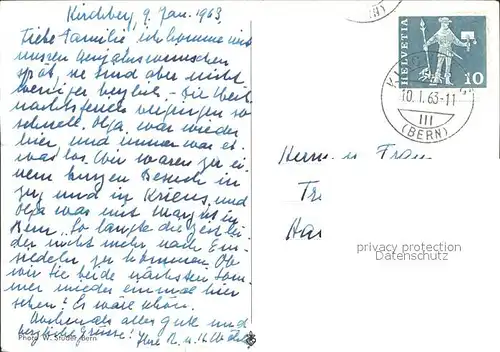 Kirchberg, 9. Jan. 1963
Liebe Familie, ich komme mit
unseren Neujahrswünschen
spät, sie sind aber nicht
weniger herzlich. - Die Weih-
nachtsferien vergingen so
schnell. Olga war wieder
hier, und immer war et-
was los. Wir waren zu ei-
nem kurzen Besuch in
Zug und in Kriens, und
Olga war mit Margrit in
Bern. So langte die Zeit lei-
der nicht mehr nach Ein-
siedeln zu kommen. Ob
wir Sie beide nächsten Som-
mer wieder einmal hier
sehen? Es wäre schön.
Nochmals alles gute und
herzliche Grüsse! Ihre R. u.
Photo W. Studer, Bern
HELVETIA
10
10.1.63-11
III
(BERN)
Herrn u. Frau
privacy protection
Datenschutz